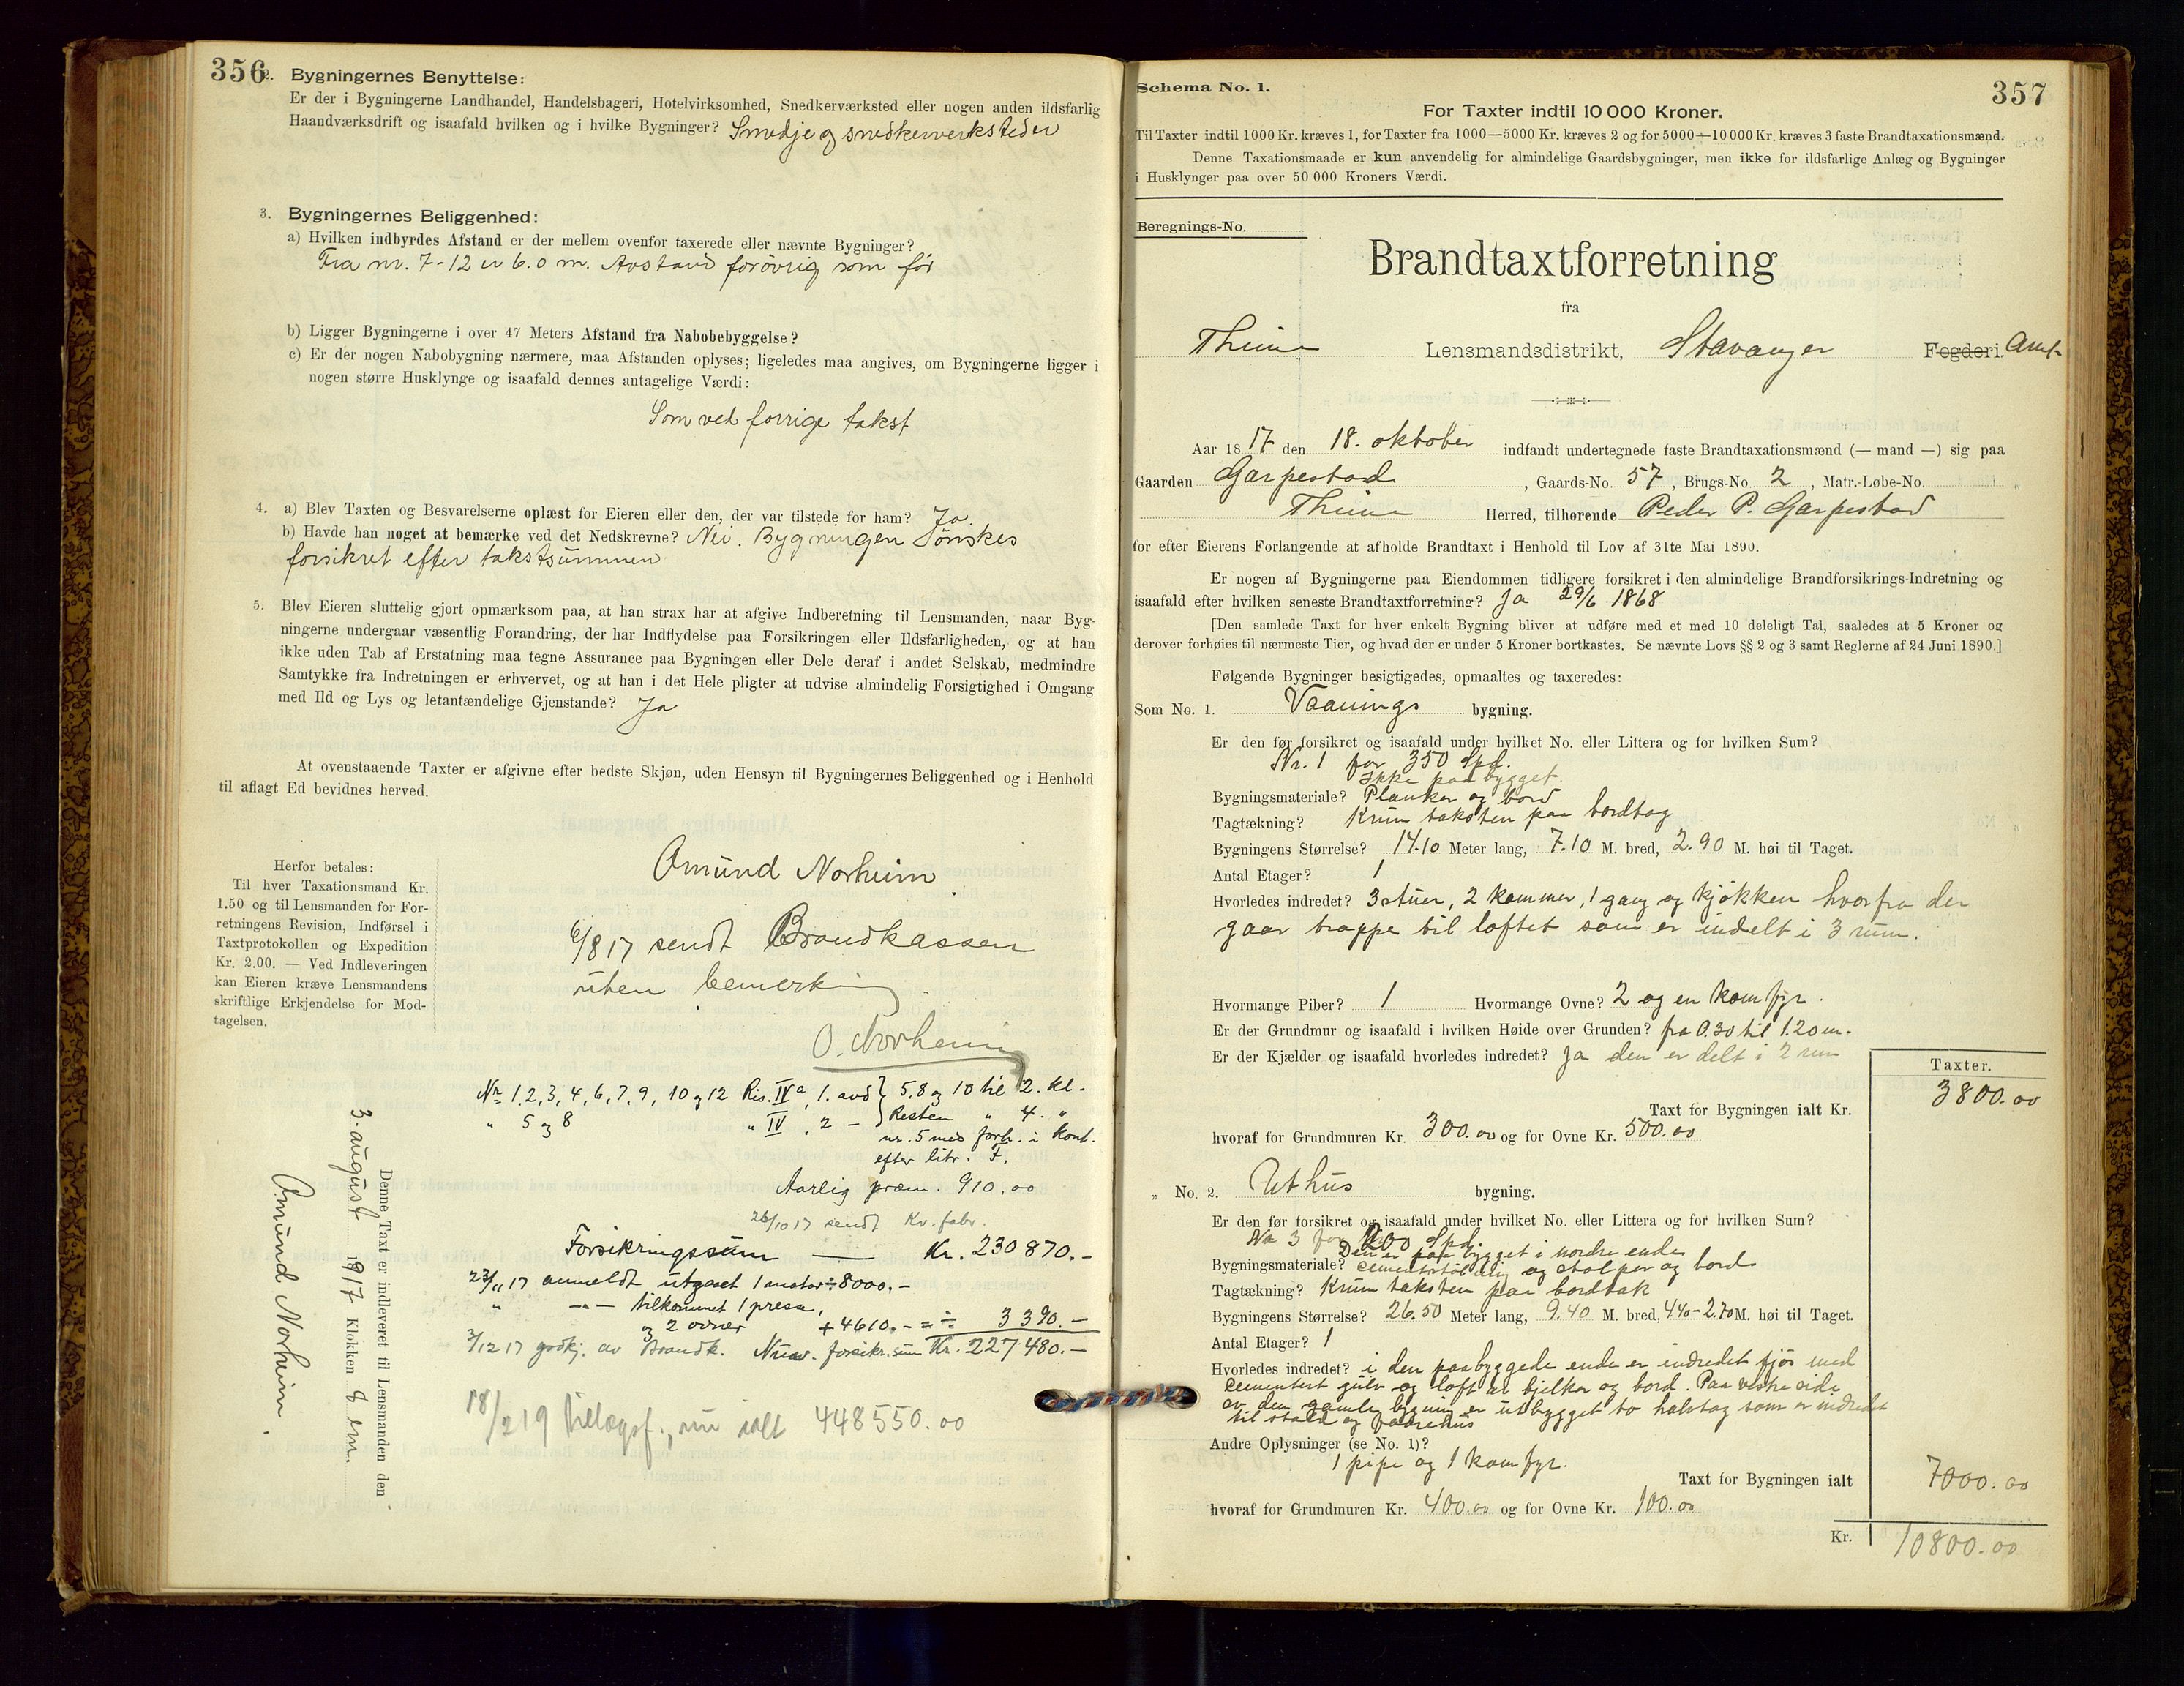 356
2. Bygningernes Benyttelse:
Er der i Bygningerne Landhandel, Handelsbageri, Hotelvirksomhed, Snedkerværksted eller nogen anden ildsfarlig
Haandværksdrift og isaafald hvilken og i hvilke Bygninger? Smedje og snedkerverksteder
3. Bygningernes Beliggenhed:
a) Hvilken indbyrdes Afstand er der mellem ovenfor taxerede eller nævnte Bygninger?
Fra nr. 7-12 er 6.0 m. Avstand forøvrig som før
b) Ligger Bygningerne i over 47 Meters Afstand fra Nabobebyggelse?
c) Er der nogen Nabobygning nærmere, maa Afstanden oplyses; ligeledes maa angives, om Bygningerne ligger i
nogen større Husklynge og isaafald dennes antagelige Værdi:
Som ved forrige takst
4. a) Blev Taxten og Besvarelserne oplæst for Eieren eller den, der var tilstede for ham? Ja.
b) Havde han noget at bemærke ved det Nedskrevne? Nei. Bygningen ønskes
forsikret efter takstsummen
5. Blev Eieren sluttelig gjort opmærksom paa, at han strax har at afgive Indberetning til Lensmanden, naar Byg-
ningerne undergaar væsentlig Forandring, der har Indflydelse paa Forsikringen eller Ildsfarligheden, og at han
ikke uden Tab af Erstatning maa tegne Assurance paa Bygningen eller Dele deraf i andet Selskab, medmindre
Samtykke fra Indretningen er erhvervet, og at han i det Hele pligter at udvise almindelig Forsigtighed i Omgang
med Ild og Lys og letantændelige Gjenstande? Ja
At ovenstaaende Taxter er afgivne efter bedste Skjøn, uden Hensyn til Bygningernes Beliggenhed og i Henhold
til aflagt Ed bevidnes herved.
Herfor betales:
Til hver Taxationsmand Kr.
1.50 og til Lensmanden for For-
retningens Revision, Indførsel i
Taxtprotokollen og Expedition
Kr. 2.00. — Ved Indleveringen
kan Eieren kræve Lensmandens
skriftlige Erkjendelse for Mod-
tagelsen.
Omund Norheim
6/8 17 sendt Brandkassen
uten bemerkning
O. Norheim
Nr 1, 2, 3, 4, 6, 7, 9, 10 og 12 Ris. IVa, 1. avd } 5, 8 og 10 til 2. kl.
" 5 og 8 " IV, 2 — } Resten " 4. "
nr. 5 med forh. i kont.
efter litr. F.
Aarlig præm. 910.00
26/10 17 sendt Kv. fabr.
Forsikringssum — Kr. 230870.-
23/11 17 anmeldt utgaaet 1 motor ÷ 8000.-
" —"— tilkommet 1 presse,
og 2 ovner + 4610.- = ÷ 3390.-
3/12 17 godkj. av Brandk. Nuv. forsikr.sum Kr. 227480.-
18/2 19 tillægsf., nu ialt 448550.00
Denne Taxt er indleveret til Lensmanden den
3. august 1917 Klokken 8 em.
Omund Norheim.
357
Schema No. 1.
For Taxter indtil 10 000 Kroner.
Til Taxter indtil 1000 Kr. kræves 1, for Taxter fra 1000—5000 Kr. kræves 2 og for 5000—10000 Kr. kræves 3 faste Brandtaxationsmænd.
Denne Taxationsmaade er kun anvendelig for almindelige Gaardsbygninger, men ikke for ildsfarlige Anlæg og Bygninger
i Husklynger paa over 50 000 Kroners Værdi.
Beregnings-No.
Brandtaxtforretning
fra
Thime Lensmandsdistrikt, Stavanger Fogderi. Amt
Aar 1817 den 18. oktober indfandt undertegnede faste Brandtaxationsmænd (— mand —) sig paa
Gaarden Garpestad, Gaards-No. 57, Brugs-No. 2, Matr.-Løbe-No.
Thime Herred, tilhørende Peder P. Garpestad
for efter Eierens Forlangende at afholde Brandtaxt i Henhold til Lov af 31te Mai 1890.
Er nogen af Bygningerne paa Eiendommen tidligere forsikret i den almindelige Brandforsikrings-Indretning og
isaafald efter hvilken seneste Brandtaxtforretning? Ja 29/6 1868
[Den samlede Taxt for hver enkelt Bygning bliver at udføre med et med 10 deleligt Tal, saaledes at 5 Kroner og
derover forhøies til nærmeste Tier, og hvad der er under 5 Kroner bortkastes. Se nævnte Lovs §§ 2 og 3 samt Reglerne af 24 Juni 1890.]
Følgende Bygninger besigtigedes, opmaaltes og taxeredes:
Som No. 1. Vaanings bygning.
Er den før forsikret og isaafald under hvilket No. eller Littera og for hvilken Sum?
Nr. 1 for 350 Spd.
Ikke paabygget.
Bygningsmateriale? Planker og bord
Tagtækning? Krum taksten paa bordtag
Bygningens Størrelse? 14.10 Meter lang, 7.10 M. bred, 2.90 M. høi til Taget.
Antal Etager? 1
Hvorledes indredet? 3 stuer, 2 kammer, 1 gang og kjøkken hvorfra der
gaar trappe til loftet som er indelt i 3 rum.
Hvormange Piber? 1 Hvormange Ovne? 2 og en komfyr.
Er der Grundmur og isaafald i hvilken Høide over Grunden? fra 0.30 til 1.20 m.
Er der Kjælder og isaafald hvorledes indredet? Ja den er delt i 2 rum
Taxter.
Taxt for Bygningen ialt Kr. 3800.00
hvoraf for Grundmuren Kr. 300.00 og for Ovne Kr. 500.00
" No. 2. Uthus bygning.
Er den før forsikret og isaafald under hvilket No. eller Littera og for hvilken Sum?
No 3 for 200 Spd.
Den er paabygget i nordre ende
Bygningsmateriale? og stolper og bord
Tagtækning? Krum taksten paa bordtak
Bygningens Størrelse? 26.50 Meter lang, 9.40 M. bred, 4.40-2.70 M. høi til Taget.
Antal Etager? 1
Hvorledes indredet? i den paabyggede ende er indredet fjøs med
cementert gulv og loft av bjelker og bord. Paa vestre side
av den gamle bygning er utbygget to halvtag som er indredet
til stald og
Andre Oplysninger (se No. 1)?
1 pipe og 1 komfyr.
Taxt for Bygningen ialt 7000.00
hvoraf for Grundmuren Kr. 400.00 og for Ovne Kr. 100.00
Kr. 10800.00